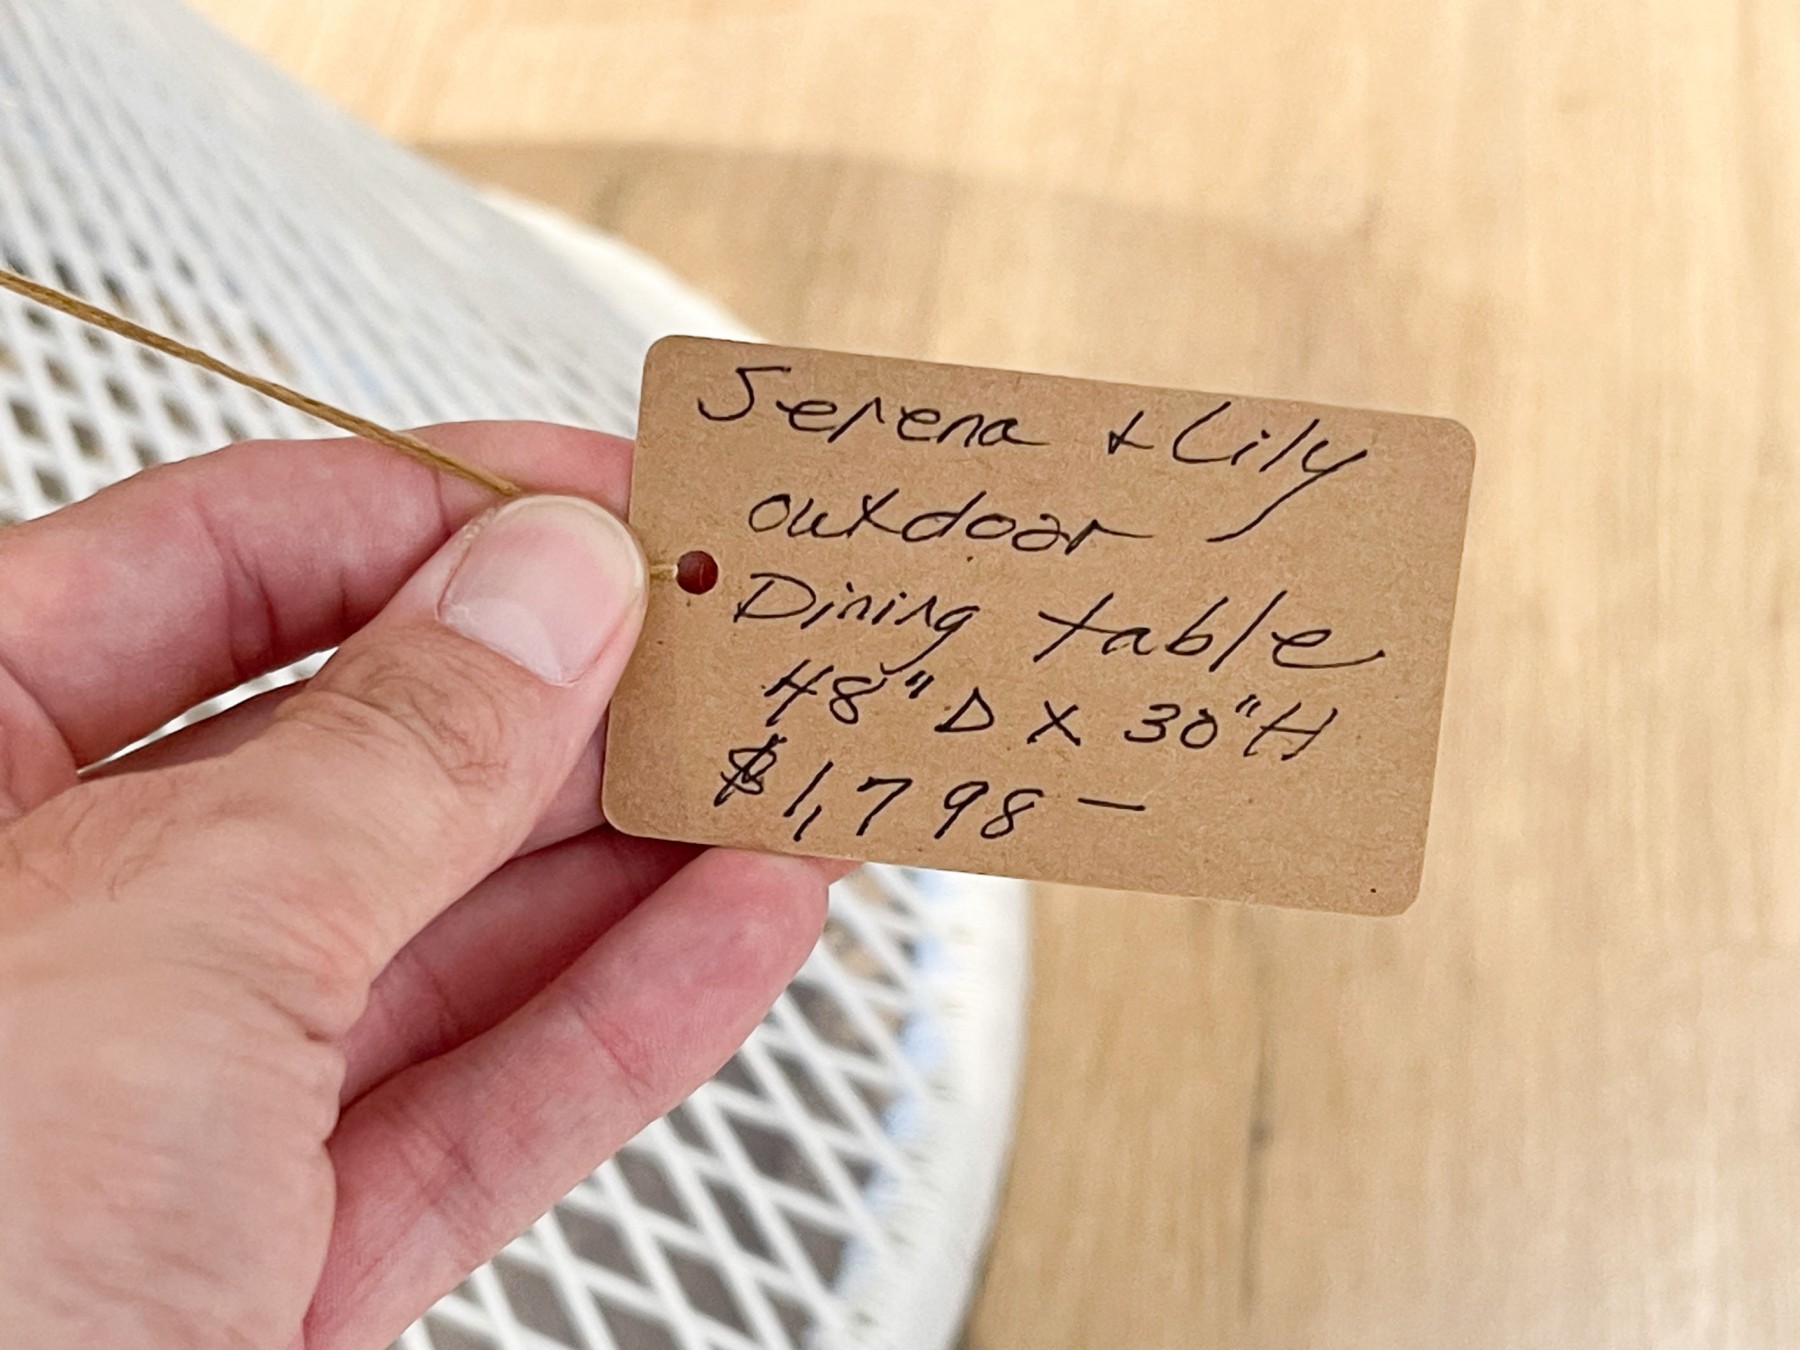 Serena + Lily
outdoor
Dining table
48" D X 30" H
$1,798 —